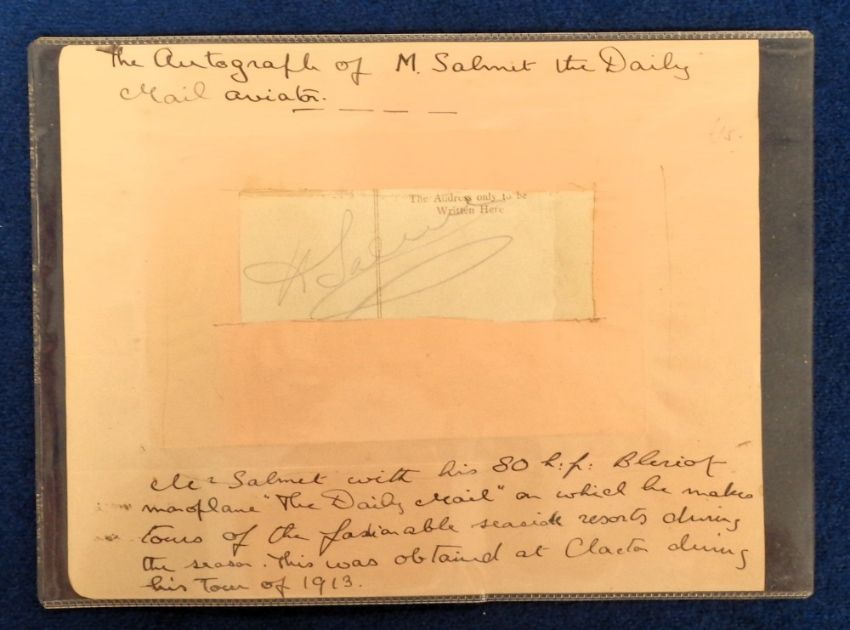 The Autograph of M. Salmet the Daily
Mail aviator.
The Address only to be
Written Here
H Salmet
Mr Salmet with his 80 h:p: Bleriot
monoplane "The Daily Mail" on which he makes
tours of the fashionable seaside resorts during
the season. This was obtained at Clacton during
his Tour of 1913.